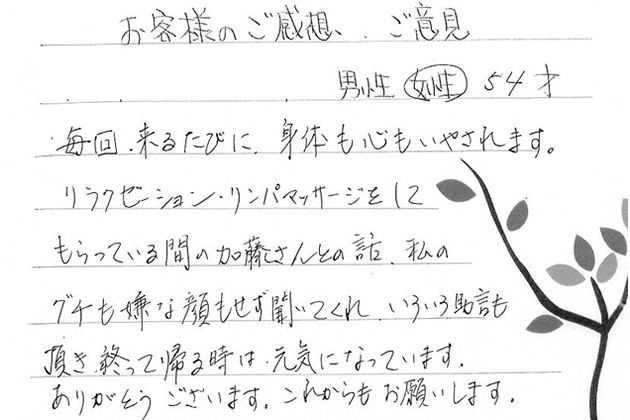 お客様のご感想、ご意見
男性 女性 54才
毎回、来るたびに、身体も心もいやされます。
リラクゼーション・リンパマッサージをして
もらっている間の加藤さんとの話、私の
グチも嫌な顔もせず聞いてくれ、いろいろ助言も
頂き、終って帰る時は、元気になっています。
ありがとうございます。これからもお願いします。